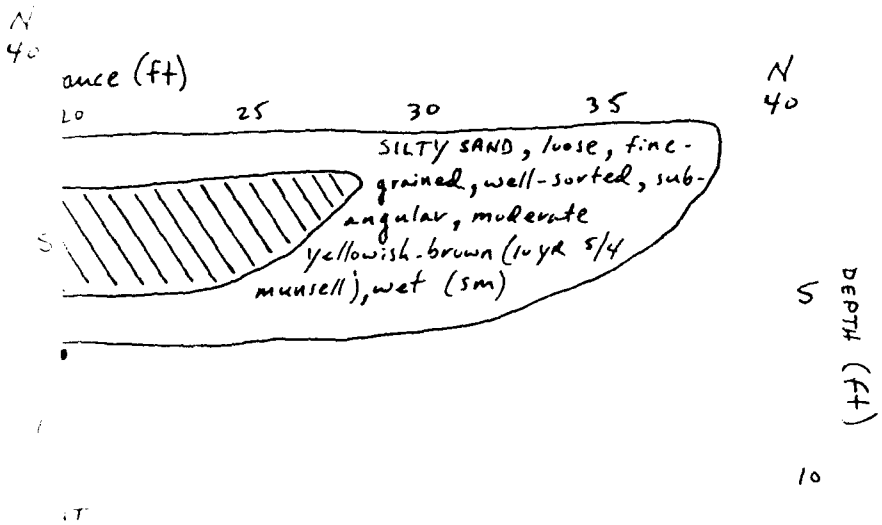 N
40
ance (ft)
20 25 30 35
N
40
SILTY SAND, loose, fine-
grained, well-sorted, sub-
angular, moderate
yellowish-brown (10yR 5/4
munsell), wet (sm)
5
5
DEPTH (ft)
10
IT